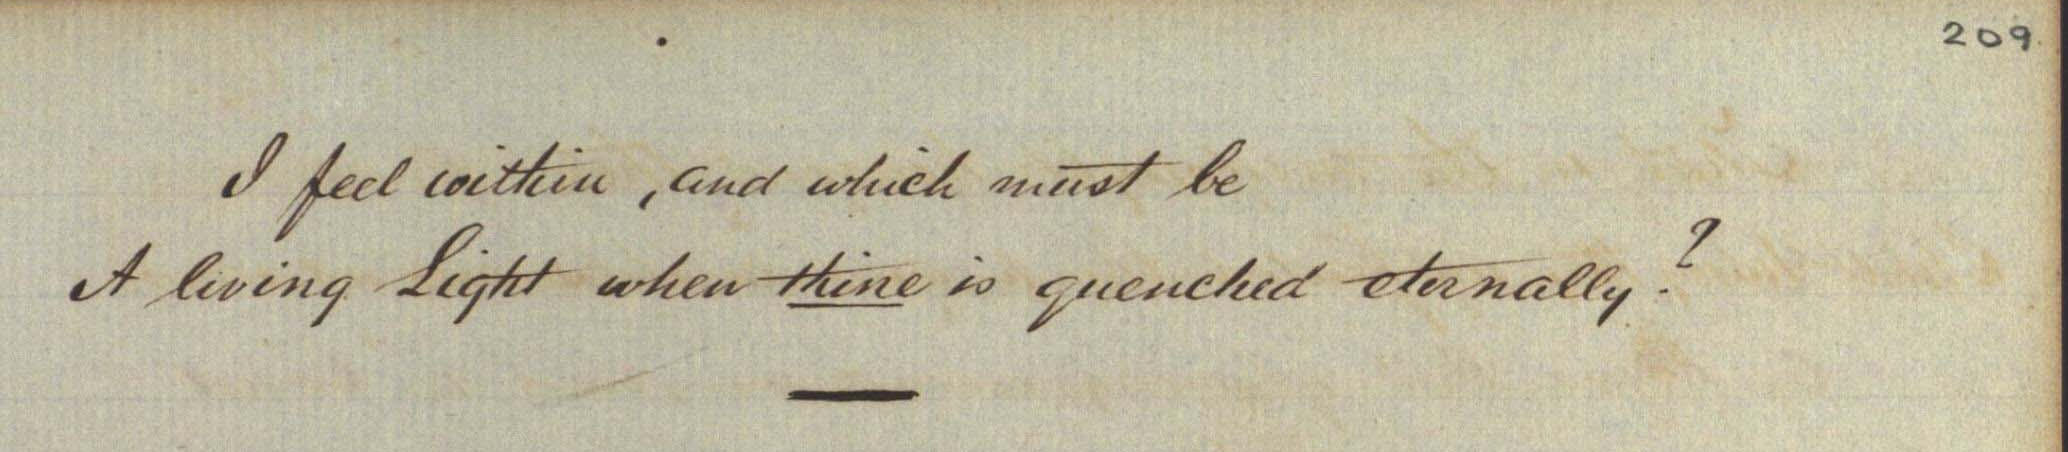 209
I feel within, and which must be
A living Light when thine is quenched eternally?